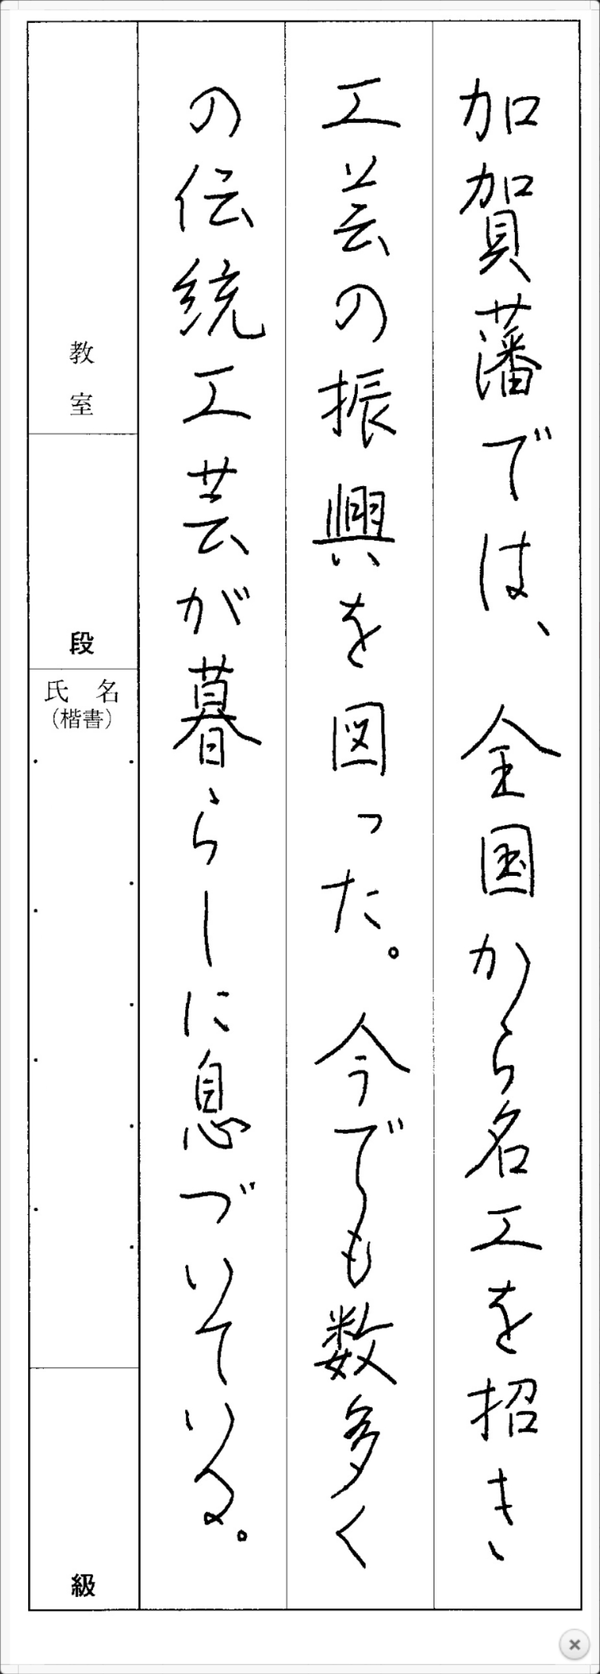 加賀藩では、全国から名工を招き、
工芸の振興を図った。今でも数多く
の伝統工芸が暮らしに息づいている。
教室
段
氏名
（楷書）
級